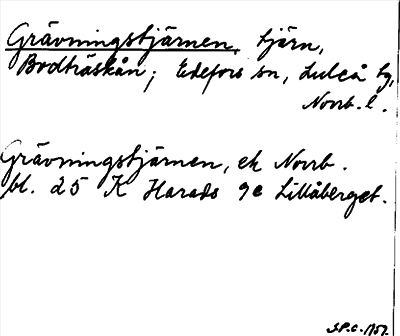 Grävningstjärnen, tjärn,
Bodträskån; Edefors sn, Luleå tg,
Norrb. l.
Grävningstjärnen, ek Norrb.
bl. 25 K Harads 9e Lillåberget.